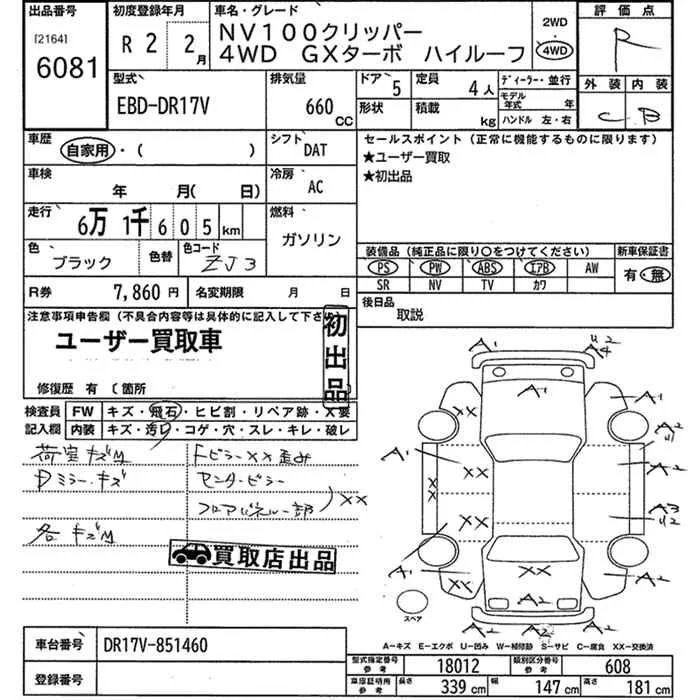 出品番号
[2164]
6081
初度登録年月
R 2 2月
車名・グレード
NV100クリッパー
4WD GXターボ ハイルーフ
2WD
・
4WD
評価点
R
外装 内装
C B
型式
EBD-DR17V
排気量
660 CC
ドア 5
形状
定員 4人
積載 kg
ディーラー・並行
モデル年式 年
ハンドル 左・右
車歴
自家用・( )
シフト DAT
車検
年 月( 日)
冷房 AC
走行
6万1千605km
燃料
ガソリン
色
ブラック
色替
色コード
ZJ3
R券 7,860円
名変期限 月 日
セールスポイント(正常に機能するものに限ります)
★ユーザー買取
★初出品
装備品(純正品に限り〇をつけてください)
PS PW ABS エアB AW
SR NV TV カワ
新車保証書
有・無
後日品
取説
注意事項申告欄(不具合内容等は具体的に記入して下さ
ユーザー買取車
初出品
修復歴 有 〔箇所
検査員記入欄
FW キズ・飛石・ヒビ割・リペア跡・X要
内装 キズ・汚レ・コゲ・穴・スレ・キレ・破レ
荷室キズM
Dミラーキズ
各キズM
FピラーXX歪み
センターピラー
フロアパネル一部
XX
買取店出品
A1
U2
A4
A1
A1
XX
A2
U2
A1
XX
A2
XX
XX
A3
U2
A1
XX
XX
A2
A2
A2
スペア
A=キズ E=エクボ U=凹み W=補修跡 S=サビ C=腐食 XX=交換済
車台番号 DR17V-851460
登録番号
型式指定番号参考 18012
類別区分番号参考 608
車庫証明用参考 長さ 339cm 幅 147cm 高さ 181cm